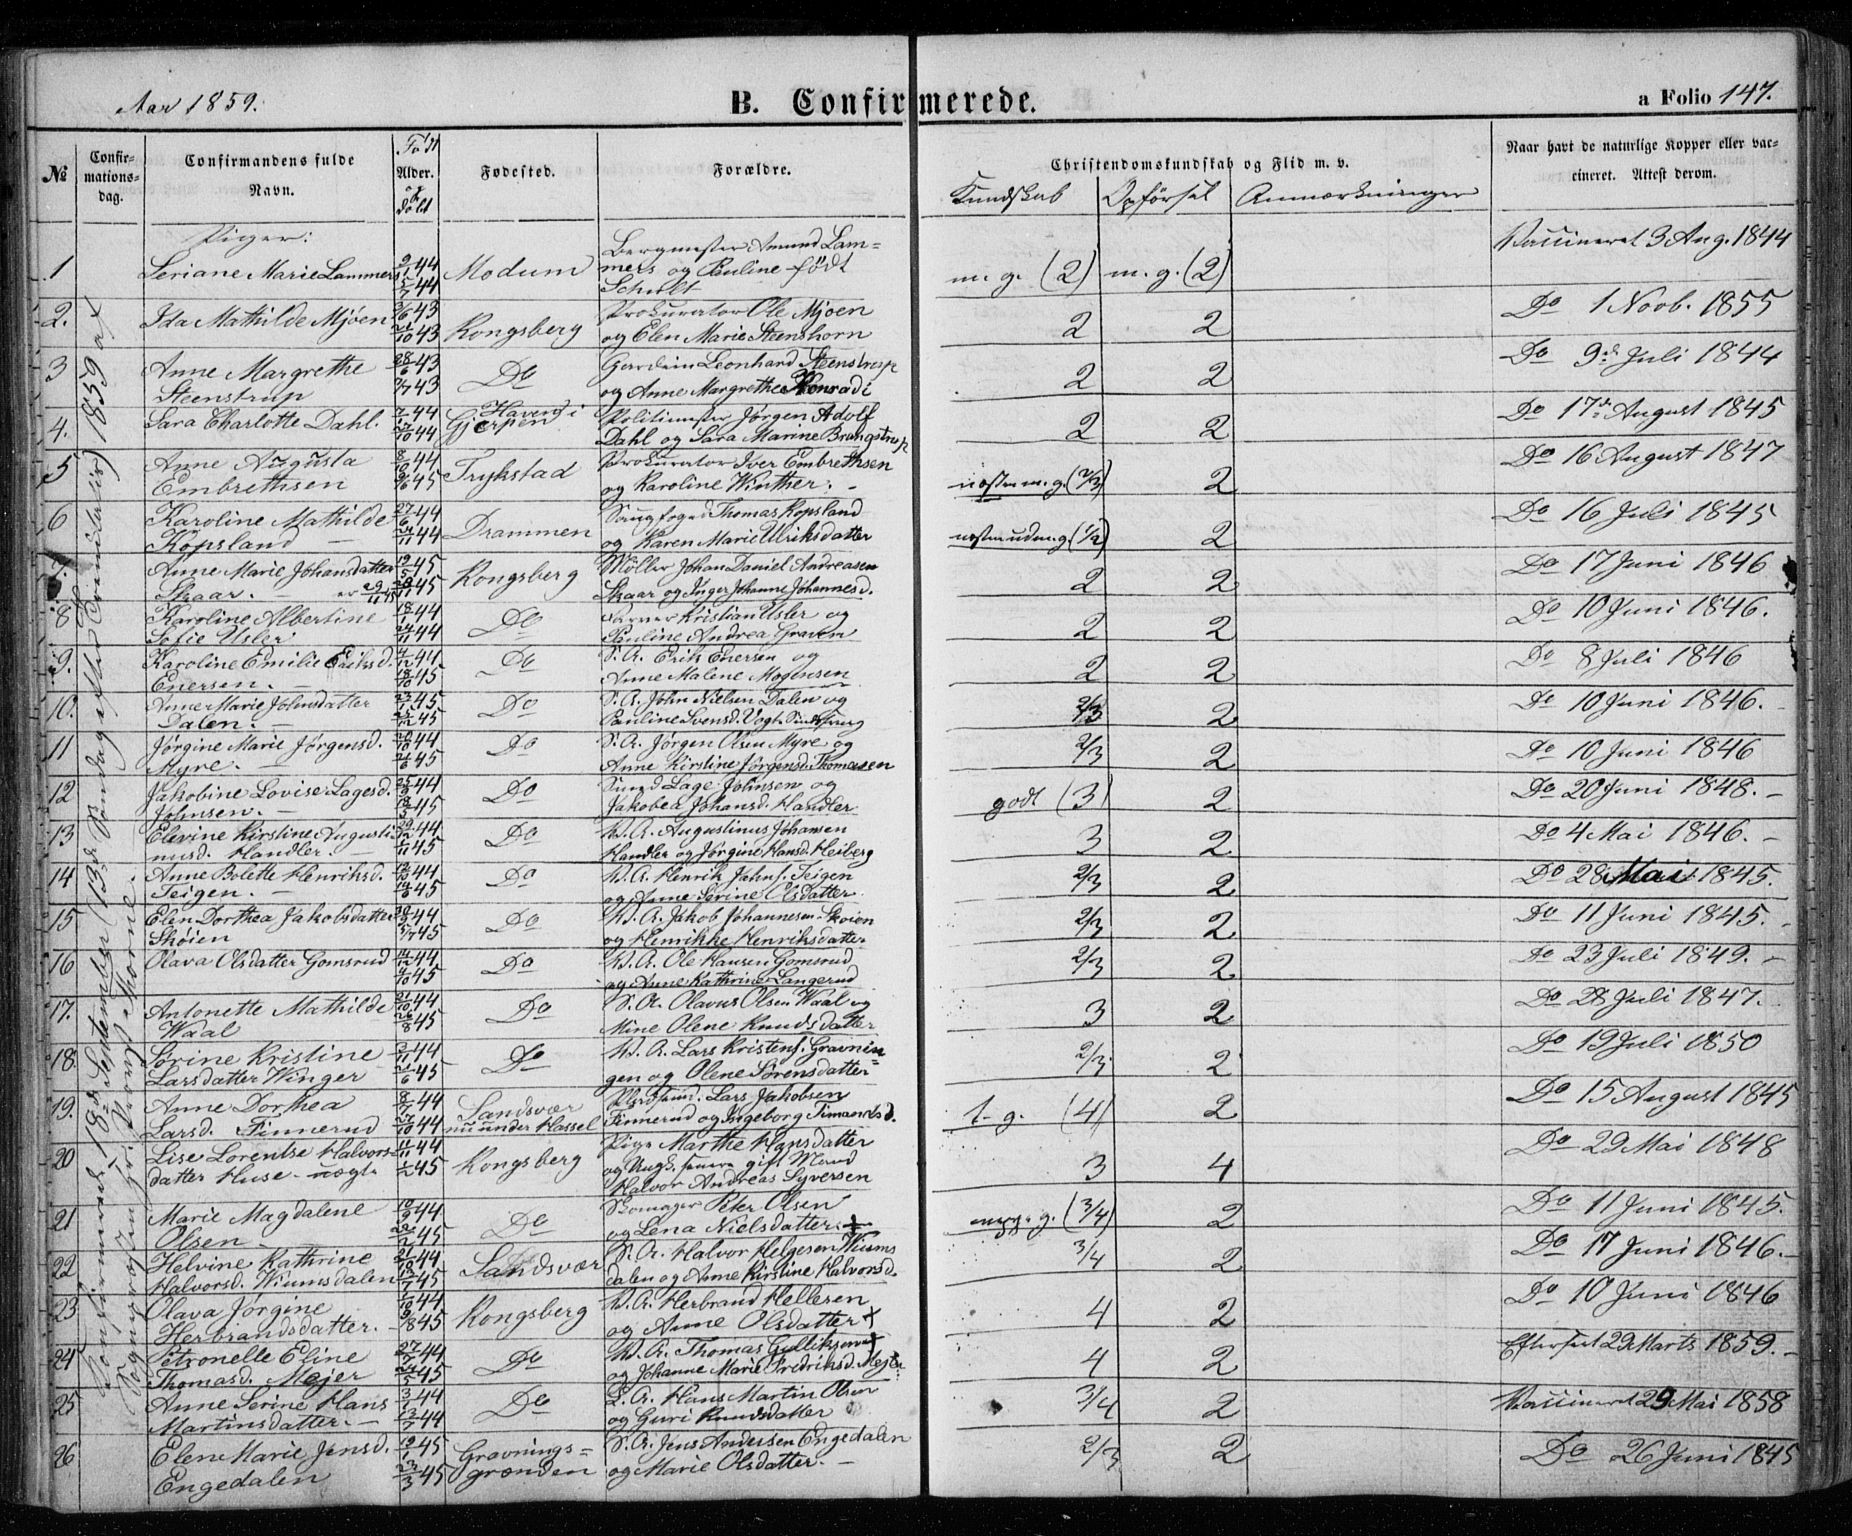 Aar 1859.
B. Confirmerede.
a Folio 147.
№
Confir-
mations-
dag.
Confirmandens fulde
Navn.
Født
Alder.
og
Døbt
Fødested.
Forældre.
Christendomskundskab og Flid m. v.
Kundskab
Opførsel
Anmærkninger
Naar havt de naturlige Kopper eller vac-
cineret. Attest derom.
Konfirmered 18de September (13de Søndag efter Trinitatis) 1859 af
Sognepræsten
Piger:
1
Seriane Marie Lammers
Modum
Bergmester Amund Lam=
mers og Pauline født
Schult
m. g. (2)
m. g. (2)
Vaccineret 3 Aug. 1844
2.
Ida Mathilde Mjøen
Kongsberg
Prokurator Ole Mjøen
og Elen Marie Steenshorn
2
2
Do 1 Novb. 1855
3
Anne Margrethe
Steenstrup
Do
Guardein Leonhard Steenstrup
og Anne Margrethe Konradi
2
2
Do 9de Juli 1844
4.
Sara Charlotte Dahl.
Gjerpen
Politimester Jørgen Adolf
Dahl og Sara Marine Brangstrup
2
2
Do 17de August 1845
5
Anne Augusta
Embrethsen
Trykstad
Prokurator Iver Embrethsen
og Karoline Winther. -
næsten m. g. (2/3)
2
Do 16 August 1847
6
Karoline Mathilde
Kopsland -
Drammen
Saugfoged Thomas Kopsland
og Karen Marie Ulriksdatter
næsten udm. g. (1/2)
2
Do 16 Juli 1845
7.
Anne Marie Johansdatter
Skaar. -
Kongsberg
Møller Johan Daniel Andreasen
Skaar og Inger Johanne Johannesd.
2
2
Do 17 Juni 1846
8
Karoline Albertine
Sofie Usler
Do
Farver Kristian Usler og
Pauline Andrea Graven
2
2
Do 10 Juni 1846.
9.
Karoline Emilie Eriksd.
Enersen. -
Do
S. A. Erik Enersen og
Anne Malene Mogensen
2
2
Do 8 Juli 1846
10.
Anne Marie Johnsdatter
Dalen. -
Do
S. A. John Nielsen Dalen og
Pauline Svensd. Vogt
2/3
2
Do 10 Juni 1846.
11
Jørgine Marie Jørgensd.
Myre. -
Do
S. A. Jørgen Olsen Myre og
Anne Kirstine Jørgensd. Thomasen
2/3
2
Do 10 Juni 1846
12
Jakobine Lovise Lagesd.
Johnsen. -
Do
Smed Lage Johnsen og
Jakobea Johansd. Handler
godt (3)
2
Do 20 Juni 1848. -
13
Elevine Kirstine Augusti
nusd. Handler. -
Do
V. A. Augustinus Johansen
Handler og Jørgine Hansd. Heiberg
3
2
Do 4 Mai 1846. -
14
Anne Bolette Henriksd.
Teigen. -
Do
V. A. Henrik Jahns. Teigen
og Anne Serine Olsdatter.
2/3
2
Do 28 Mai 1845.
15
Elen Dorthea Jakobsdatter
Skøien
Do
V. A. Jakob Johannesen Skøien
og Henrikke Henriksdatter
2/3
2
Do 11 Juni 1845.
16
Olava Olsdatter Gomsrud
Do
V. A. Ole Hansen Gomsrud
og Anne Kathrine Langerud
2/3
2
Do 23 Juli 1849. -
17.
Antonette Mathilde
Waal
Do
S. A. Olavus Olsen Waal og
Mine Olene Knudsdatter
3
2
Do 28 Juli 1847.
18.
Sørine Kristine
Larsdatter Winger
Do
V. A. Lars Kristens. Gravnin=
gen og Olene Sørensdatter
2/3
2
Do 19 Juli 1850
19.
Anne Dorthea
Larsd. Finnerud
Sandsvær
nu under Hassel
Lars Jakobsen
Finnerud og Ingeborg Timandsd.
t. g. (4)
2
Do 15 August 1845
20
Lise Lorentse Halvors-
datter Huse - uægt.
Kongsberg
Pige Marthe Hansdatter
og Ungk. senere gift Mand
Halvor Andreas Syversen
3
4
Do 29 Mai 1848
21
Marie Magdalene
Olsen
Do
Skomager Peter Olsen
og Lena Nielsdatter. +
(3/4)
2
Do 11 Juni 1845.
22
Helvine Kathrine
Halvorsd. Wiumsdalen
Sandsvær
S. A. Halvor Helgesen Wiums
dalen og Anne Kirstine Halvorsd.
3/4
2
Do 17 Juni 1846. -
23
Olava Jørgine
Herbrandsdatter.
Kongsberg
V. A. Herbrand Hellesen
og Anne Olsdatter +
4
2
Do 10 Juni 1846
24
Petronelle Eline
Thomasd. Mejer
Do
V. A. Thomas Gulliksen +
og Johanne Marie Fredriksd. Mejer
4
2
Efterseet 29 Marts 1859. -
25
Anne Serine Hans
Martinsdatter. -
Do
L. A. Hans Martin Olsen
og Guri Knudsdatter
3/4
2
Vaccineret 29 Mai 1858
26
Elene Marie Jensd.
Engedalen
Gravnings=
grænden
S. A. Jens Andersen Engedalen
og Marie Olsdatter. -
2/3
2
Do 26 Juni 1845